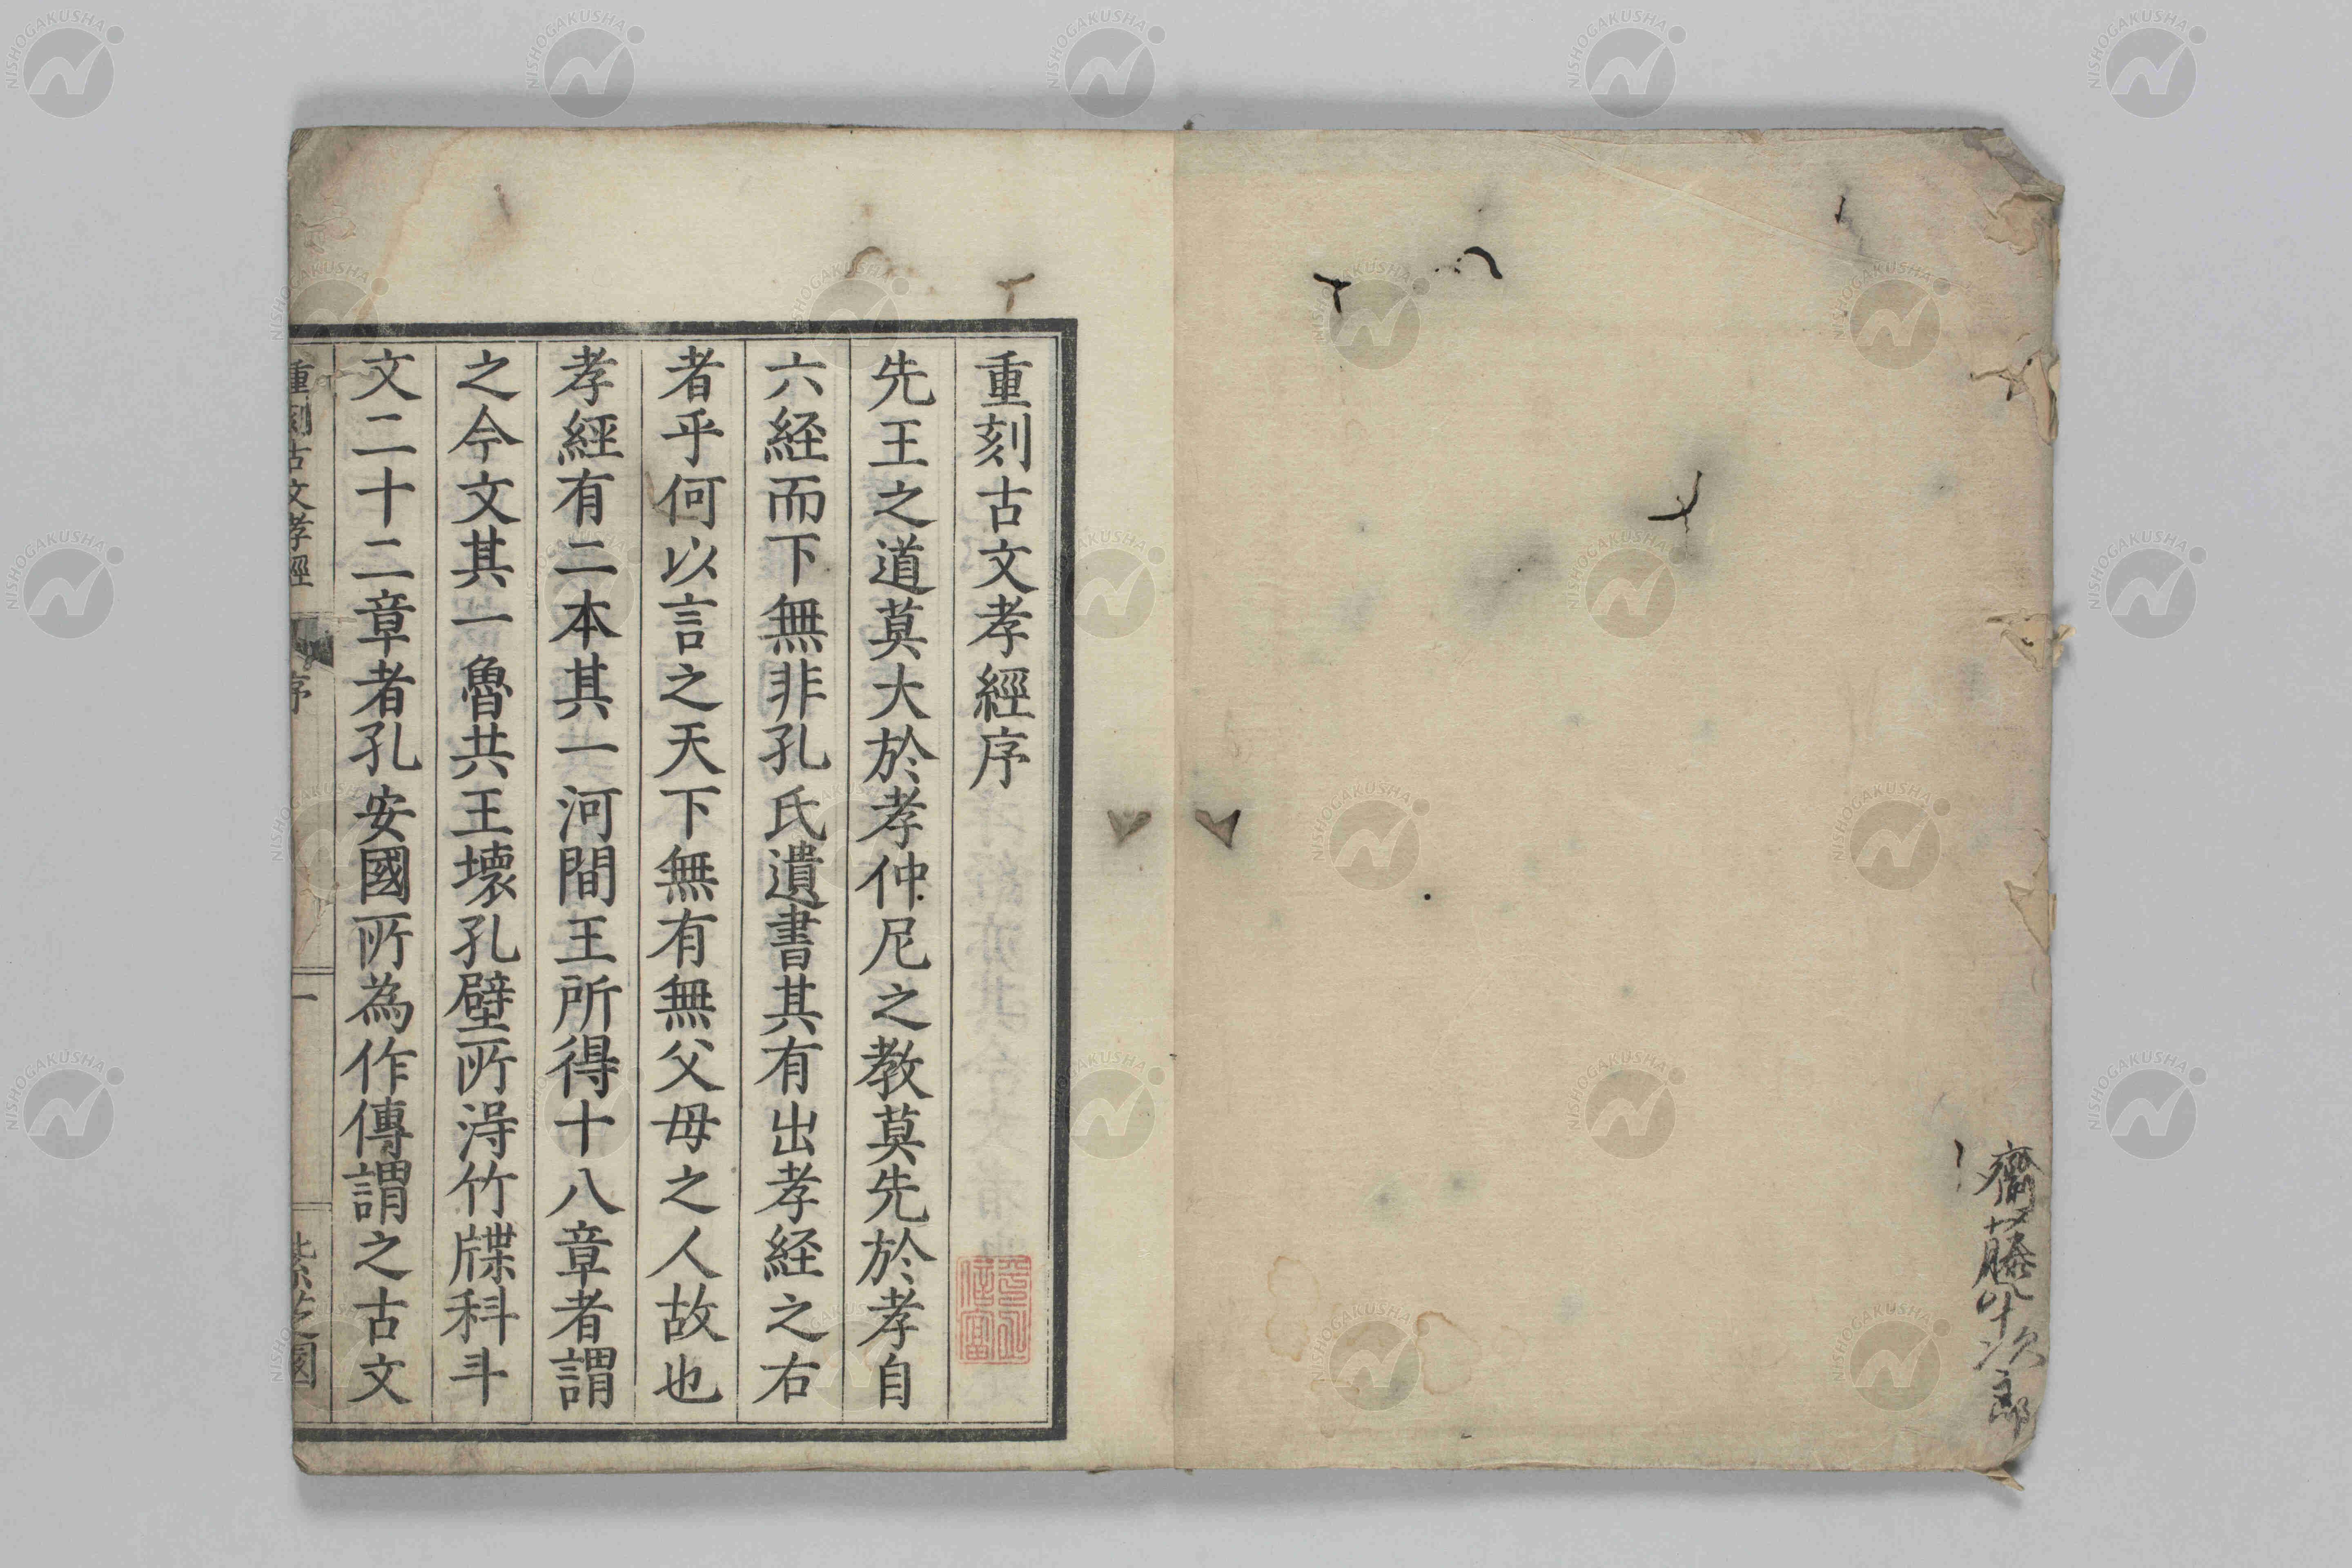 齋藤
次郎
重刻古文孝經序
先王之道莫大於孝仲尼之教莫先於孝自
六経而下無非孔氏遺書其有出孝経之右
者乎何以言之天下無有無父母之人故也
孝經有二本其一河間王所得十八章者謂
之今文其一魯共王壞孔壁所淂竹牒科斗
文二十二章者孔安國所為作傳謂之古文
重刻古文孝經
序
一
紫芝園
NISHOGAKUSHA